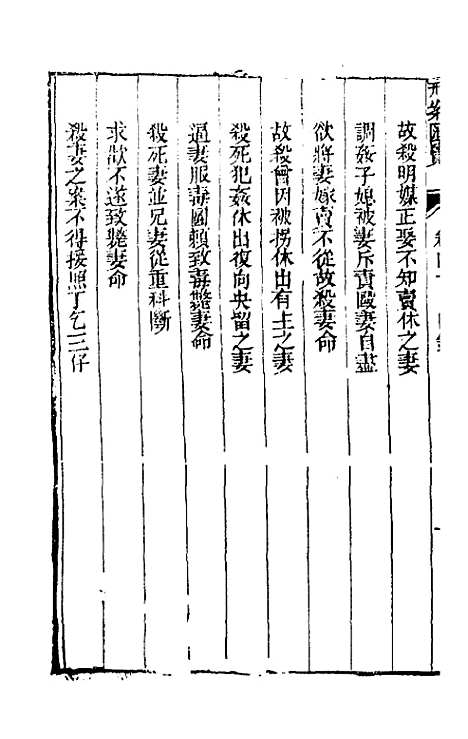 刑案匯覽
故殺明媒正娶不知賣休之妻
調姦子媳被妻斥責毆妻自盡
欲將妻嫁賣不從故殺妻命
故殺曾因被拐休出有主之妻
殺死犯姦休出復向央留之妻
逼妻服毒圖賴致毒斃妻命
殺死妻並兄妻從重科斷
求歡不遂致斃妻命
殺妻之案不得援照丁乞三仔